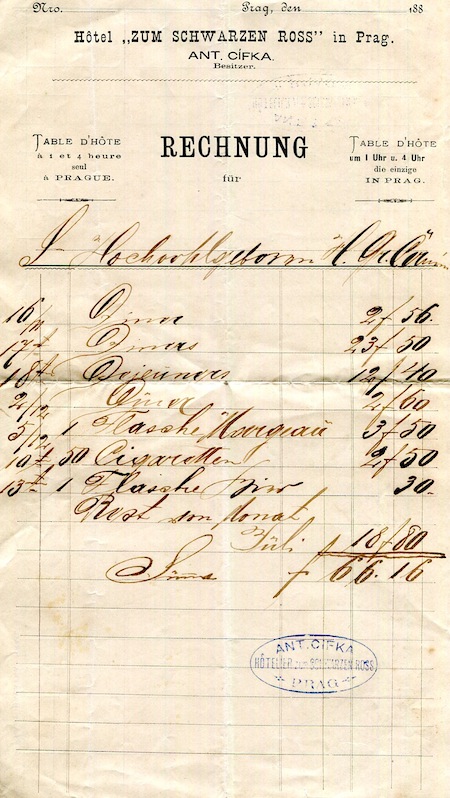 Nro. Prag, den 188
Hôtel „ZUM SCHWARZEN ROSS" in Prag.
ANT. CÍFKA.
Besitzer.
TABLE D'HÔTE
à 1 et 4 heure
seul
à PRAGUE.
RECHNUNG
für
TABLE D'HÔTE
um 1 Uhr u. 4 Uhr
die einzige
IN PRAG.
Hochwohlgeborn H.
16/11 Diner 2f 56.
17t Diners 23f 50
18t Dejeuners 12f 40
2/12 Diner 2f 60
5/12 1 Flasche Margeau 3f 50
10t 50 Cigaretten 2f 50
13t 1 Flasche Bier 30.
Rest von Monat
Juli f 18f 80
Suma f 66.16
ANT. CÍFKA
HÔTELIER zum SCHWARZEN ROSS
PRAG